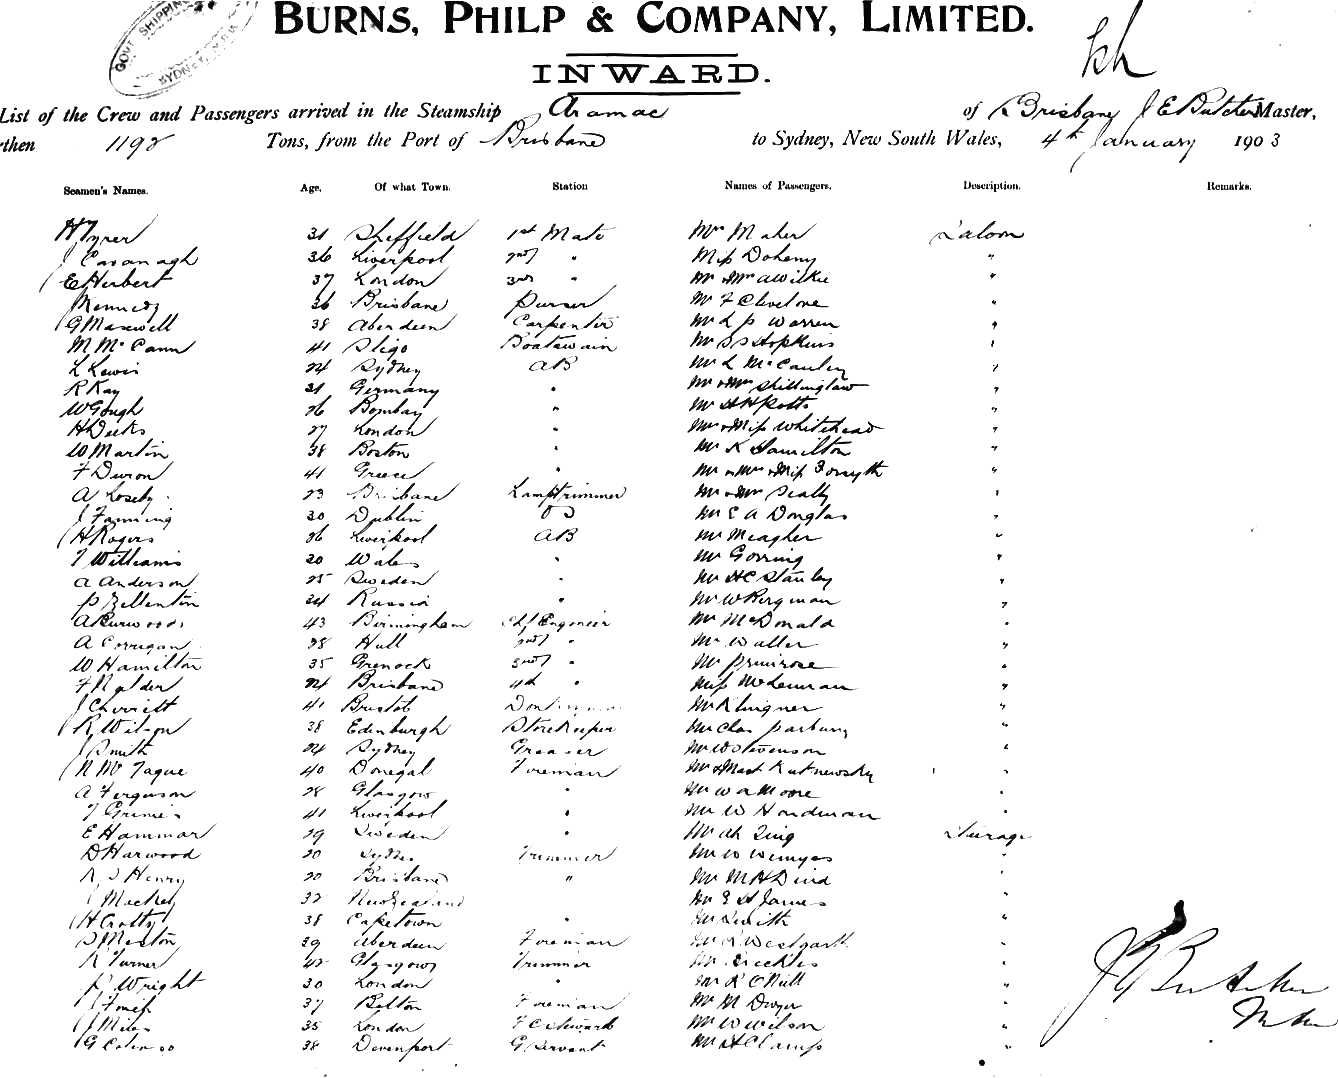 GOVT SHIPPING
SYDNEY. N.S.W
BURNS, PHILP & COMPANY, LIMITED.
INWARD.
List of the Crew and Passengers arrived in the Steamship Aramac of Brisbane J E Butcher Master,
then 1192 Tons, from the Port of Brisbane to Sydney, New South Wales, 4th January 1903
Seamen's Names. Age. Of what Town. Station Names of Passengers. Description. Remarks.
H Tyrer 31 Sheffield 1st Mate Mrs Maher Saloon
J Cavanagh 36 Liverpool 2nd " Miss Doheny "
E Herbert 37 London 3rd " Mr & Mrs A Wilkie "
Kennedy 36 Brisbane Purser Mr F "
G Maxwell 38 Aberdeen Carpenter Mr L P Warren "
M McCann 41 Sligo Boatswain Mr S S Hopkins "
L Lewis 24 Sydney AB Mr L McCauley "
R Kay 31 Germany " Mr & Mrs Shillinglaw "
W Gough 26 Bombay " Mr H H Potts "
H Deeks 27 London " Mrs & Miss Whitehead "
W Martin 38 Boston " Mr K Hamilton "
F 41 Greece " Mr & Mrs & Miss Forsyth "
A Loseby 23 Brisbane Lamptrimmer Mr & Mrs Scally "
J Fanning 30 Dublin OS Mr C A Douglas "
H Rogers 26 Liverpool AB Mr Meagher "
T Williams 20 Wales " Mr Gorring "
A Anderson 25 Sweden " Mr H C Stanley "
P Zellentin 34 Russia " Mr W Bergman "
A Burwood 43 Birmingham Chf Engineer Mr McDonald "
A Corrigan 28 Hull 2nd " Mr Waller "
W Hamilton 35 Grenock 3rd " Mr Primrose "
F Nalder 24 Brisbane 4th " Miss McLennan "
J Cherrett 41 Bristol Mr Klugner "
R Wilson 38 Edinburgh Storekeeper Mr Chas Parbury "
J Smith 24 Sydney Greaser Mr W Stevenson "
N McTague 40 Donegal Foreman Mr & Mast "
A Ferguson 28 Glasgow " Mr W A Moore "
T Grimes 41 Liverpool " Mr W Hardiman "
E Hammar 29 Sweden " Mr Ah Ling Steerage
D Harwood 20 Sydney Trimmer Mr W Wemyss "
Henry 20 Brisbane " Mr M H "
J Mackey 32 New Zealand Mr E H James "
H Crotty 38 Capetown " Mr Smith "
Meston 39 Aberdeen Foreman Mr Westgarth "
R Turner 42 Glasgow Trimmer Mr "
Wright 30 London " Mr R O'Neill "
37 Bolton Foreman Mr M Dwyer "
J Miles 35 London F C Steward Mr W Wilson "
G 38 Devenport G Servant Mr H Clamp "
J E Butcher
Master